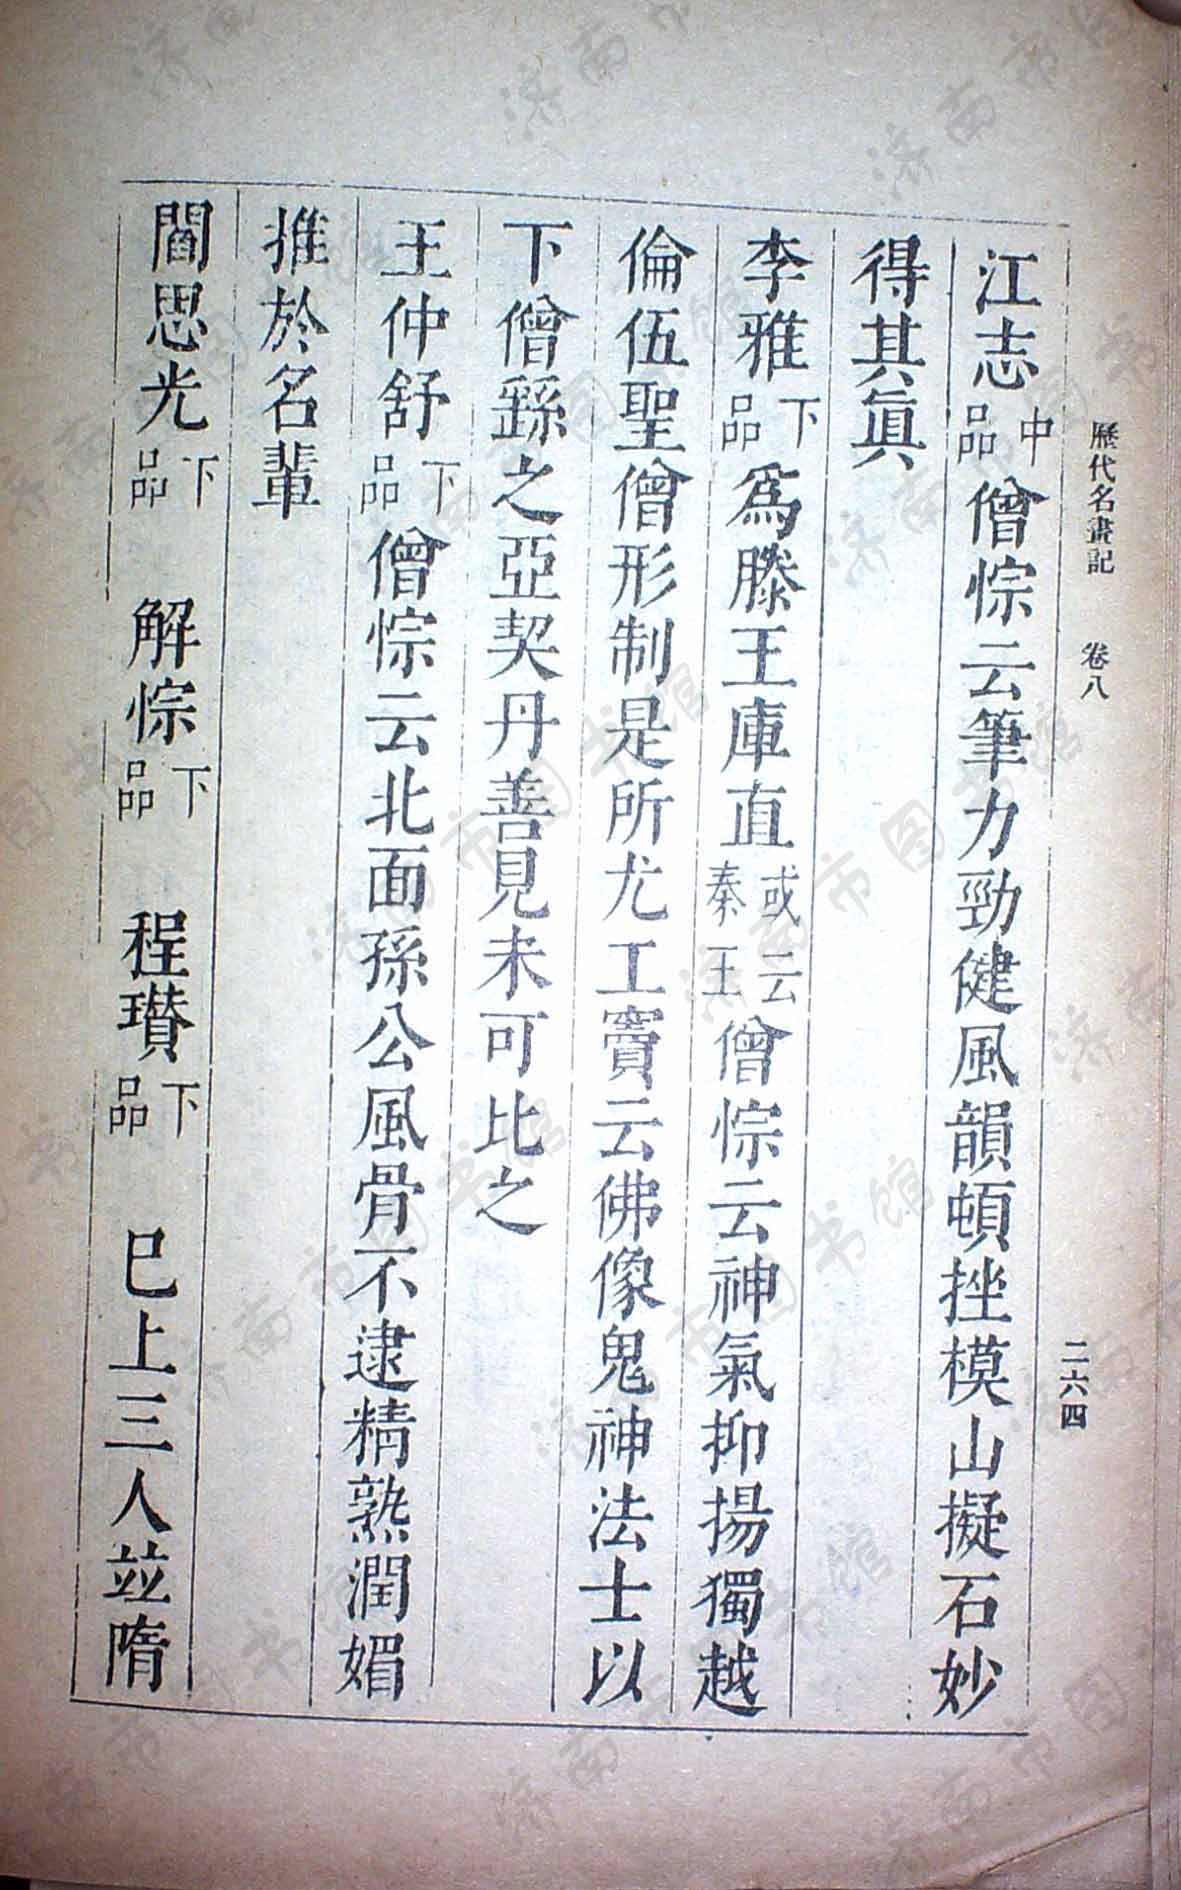 歷代名畫記 卷八 二六四
江志中品僧悰云筆力勁健風韻頓挫模山擬石妙
得其眞
李雅下品爲滕王庫直或云秦王僧悰云神氣抑揚獨越
倫伍聖僧形制是所尤工竇云佛像鬼神法士以
下僧繇之亞契丹善見未可比之
王仲舒下品僧悰云北面孫公風骨不逮精熟潤媚
推於名輩
閻思光下品 解悰下品 程瓚下品 巳上三人並隋
济南市图书馆